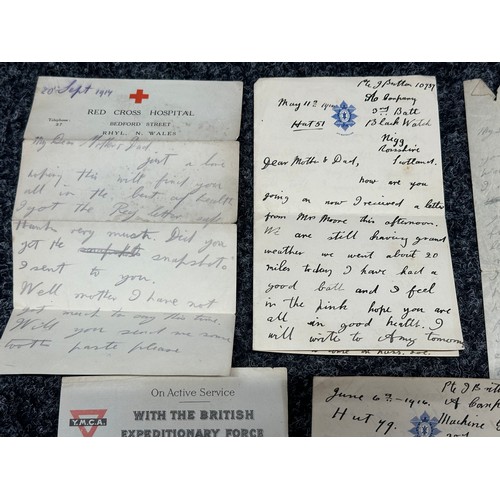 20th Sept 1917
RED CROSS HOSPITAL
BEDFORD STREET
RHYL, N. WALES
Telephone:
My Dear Mother & Dad,
just a line
hoping this will find you
all in the best of health
I got the Reg letter safe
thanks very much. Did you
get the snapshots
I sent to you.
Well mother I have not
got much to say this time.
Will you send me some
tooth paste please
Pte J Britton 10737
Company
3rd Batt
Black Watch
Nigg
Rossshire
Scotland.
May 11th 1916
Hut 51
Dear Mother & Dad,
how are you
going on now I received a letter
from Mrs Moore this afternoon.
We are still having grand
weather we went about 20
miles today I have had a
good bath and I feel
in the pink hope you are
all in good health. I
will write to Amy tomorrow
On Active Service
WITH THE BRITISH
EXPEDITIONARY FORCE
Y.M.C.A.
June 6th 1916.
Hut 49.
Pte J Britt
A Comp
Machine